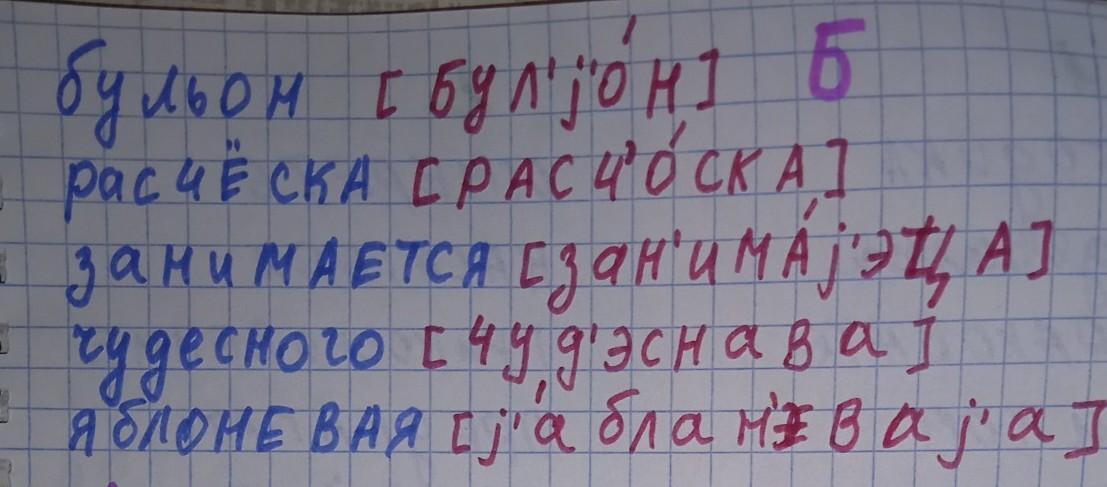 бульон [БУЛ'j'О́Н] Б
расчЁСКА [РАСЧ'О́СКА]
занимАЕТСЯ [зАН'ИМА́j'ЭЦА]
чудесного [ЧУД'ЭСНаВа]
яблонЕВАЯ [j'а́бланʼиВаj'а]